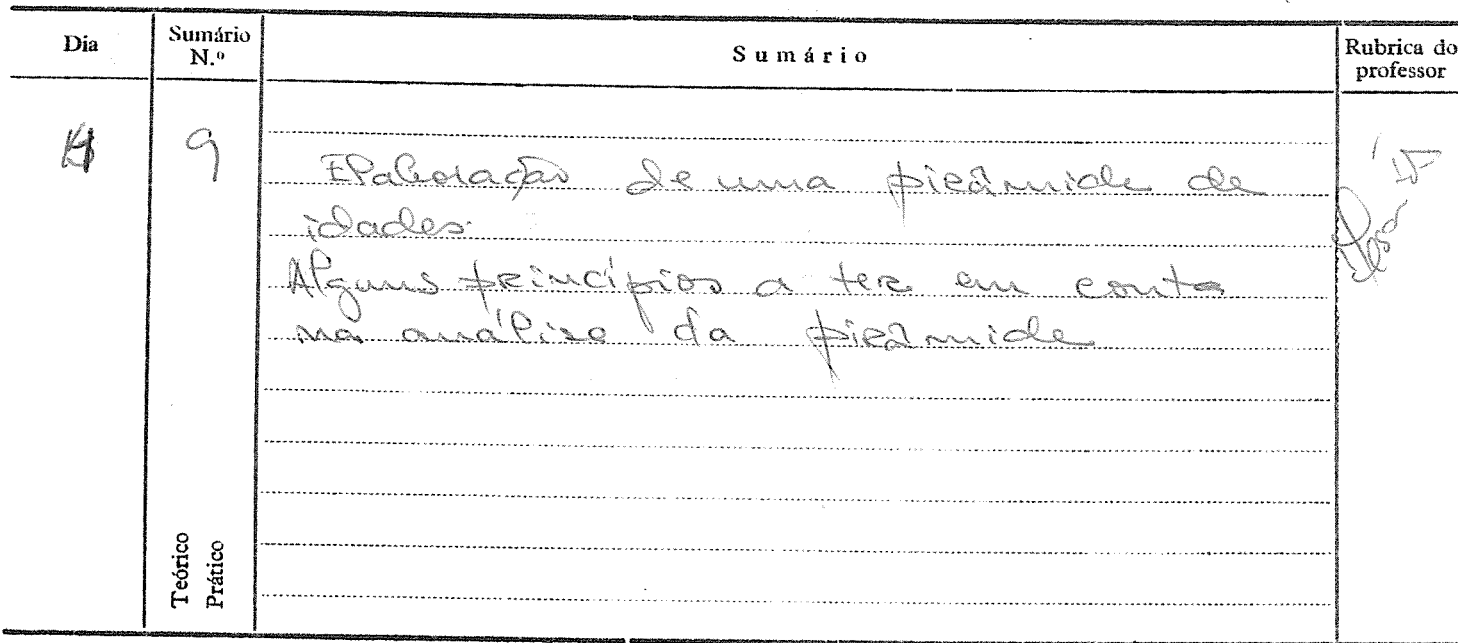 Dia
Sumário N.º
Sumário
Rubrica do professor
9
Elaboração de uma pirâmide de
idades.
Alguns princípios a ter em conta
na análise da pirâmide
Teórico
Prático